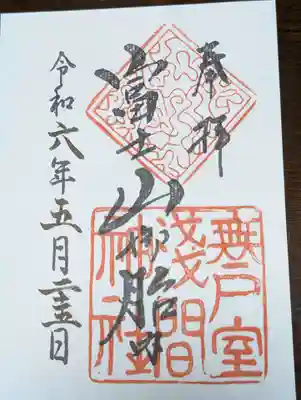 奉拝
富士山御胎内
無戸室
淺間
神社
令和六年五月日